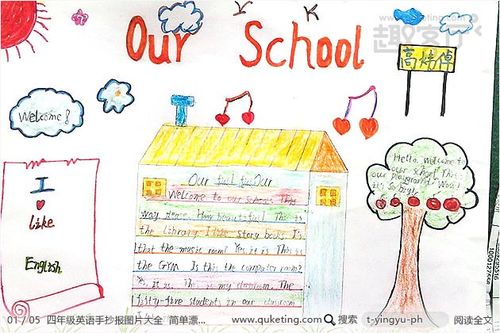 Our School
高炜倬
Welcome!
I
Like
English
Our
Welcome to our school. This
way please. How beautiful! This is
the library. I like story books. Is
that the music room? Yes, it is. This is
the GYM. Is this the computer room?
Yes, it is. This is my classroom. The
fifty-five students in our classroom
Hello, welcome to
our school! This is
our playground. Wow!
It's so big!
01 / 05 四年级英语手抄报图片大全 简单漂...
www.quketing.com 搜索 t-yingyu-ph
阅读全文